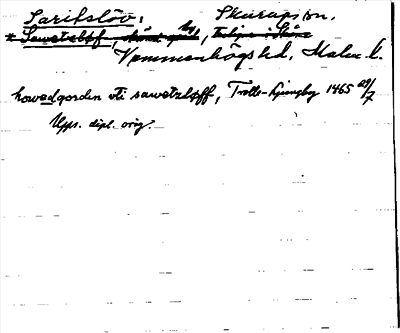 Saritslöv, Skurups sn.
* Sawetsløf, by,
Vemmenhögs hd, Malm. l.
howedgorden vti sawetzløff, Trolle-Ljungby 1465 29/7
Upps. dipl. orig.